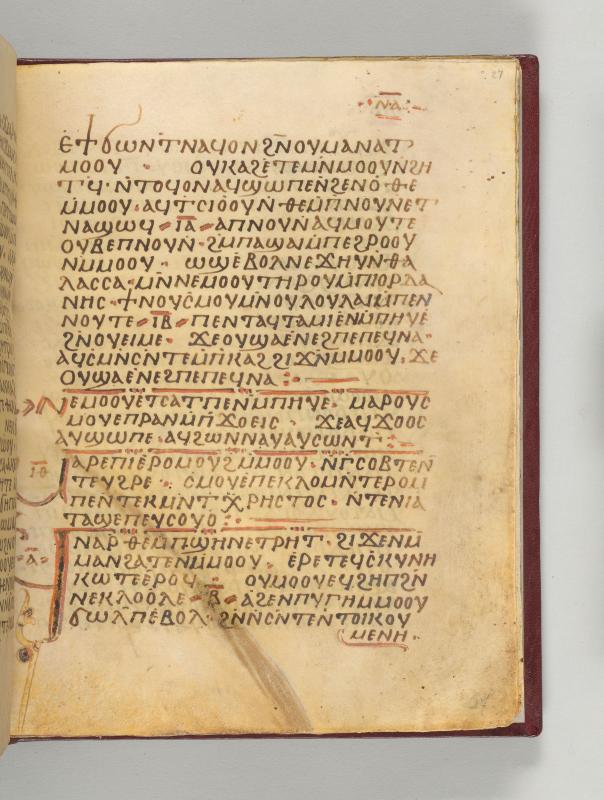 27
ⲛⲁ
ⲉϯϭⲱⲛⲧⲛⲁϥⲟⲛϩⲛⲟⲩⲙⲁⲛⲁⲧ
ⲙⲟⲟⲩ · ⲟⲩⲕⲁϩⲉⲧⲉⲙⲛⲙⲟⲟⲩⲛϩⲏ
ⲧϥ · ⲛⲧⲟϥⲟⲛⲁϥϣⲱⲡⲉⲛϩⲉⲛⲟ · ⲑⲉ
ⲙⲙⲟⲟⲩ · ⲁϥⲧⲥⲓⲟⲟⲩⲛ · ⲑⲉⲙⲡⲛⲟⲩⲛⲉⲧ
ⲛⲁϣⲱϥ · ⲓⲁ · ⲁⲡⲛⲟⲩⲛⲁϥⲙⲟⲩⲧⲉ
ⲟⲩⲃⲉⲡⲛⲟⲩⲛ · ϩⲙⲡⲁϣⲁⲓⲙⲡⲉϩⲣⲟⲟⲩ
ⲛⲙⲙⲟⲟⲩ · ⲱϣⲉⲃⲟⲗⲛⲉϫⲏⲩⲛⲑⲁ
ⲗⲁⲥⲥⲁ · ⲙⲛⲛⲉⲙⲟⲟⲩⲧⲏⲣⲟⲩⲙⲡⲓⲟⲣⲇⲁ
ⲛⲏⲥ · ϯⲛⲟⲩⲥⲙⲟⲩⲙⲛⲟⲩⲗⲟⲩⲗⲁⲓⲙⲡⲉⲛ
ⲛⲟⲩⲧⲉ · ⲓⲃ · ⲡⲉⲛⲧⲁϥⲧⲁⲙⲓⲉⲛⲙⲡⲏⲩⲉ
ϩⲛⲟⲩⲉⲓⲙⲉ · ϫⲉⲟⲩϣⲁⲉⲛⲉϩⲡⲉⲡⲉϥⲛⲁ ·
ⲁϥⲥⲙⲛⲥⲛⲧⲉⲙⲡⲕⲁϩϩⲓϫⲛⲙⲙⲟⲟⲩ · ϫⲉ
ⲟⲩϣⲁⲉⲛⲉϩⲡⲉⲡⲉϥⲛⲁ :
ⲛⲉⲙⲟⲟⲩⲉⲧⲥⲁⲧⲡⲉⲛⲙⲡⲏⲩⲉ · ⲙⲁⲣⲟⲩⲥ
ⲙⲟⲩⲉⲡⲣⲁⲛⲙⲡϫⲟⲉⲓⲥ · ϫⲉⲁϥϫⲟⲟⲥ
ⲁⲩϣⲱⲡⲉ · ⲁϥϩⲱⲛⲛⲁⲩⲁⲩⲥⲱⲛⲧ :
ⲓⲑ
ⲁⲣⲉⲡⲓⲉⲣⲟⲙⲟⲩϩⲙⲙⲟⲟⲩ · ⲛⲅⲥⲟⲃⲧⲉⲛ
ⲧⲉⲩϩⲣⲉ · ⲥⲙⲟⲩⲉⲡⲉⲕⲗⲟⲙⲛⲧⲉⲣⲟⲙ
ⲡⲉⲛⲧⲉⲕⲙⲛⲧⲭⲣⲏⲥⲧⲟⲥ · ⲛⲧⲉⲛⲓⲁ
ⲧⲁϣⲉⲡⲉⲩⲥⲟⲩⲟ :
ⲁ
ⲛⲁⲣⲑⲉⲙⲡϣⲏⲛⲉⲧⲣⲏⲧ · ϩⲓϫⲉⲛⲙ
ⲙⲁⲛϩⲁⲧⲉⲛⲙⲙⲟⲟⲩ · ⲉⲣⲉⲧⲉϥⲥⲕⲩⲛⲏ
ⲕⲱⲧⲉⲉⲣⲟϥ · ⲟⲩⲙⲟⲟⲩⲉϥϩⲏⲡϩⲛ
ⲛⲉⲕⲗⲟⲟⲗⲉ · ⲃ · ⲁϩⲉⲛⲡⲩⲅⲏⲙⲙⲟⲟⲩ
ϭⲱⲗⲡⲉⲃⲟⲗ · ϩⲛⲛⲥⲛⲧⲉⲛⲧⲟⲓⲕⲟⲩ
ⲙⲉⲛⲏ ·